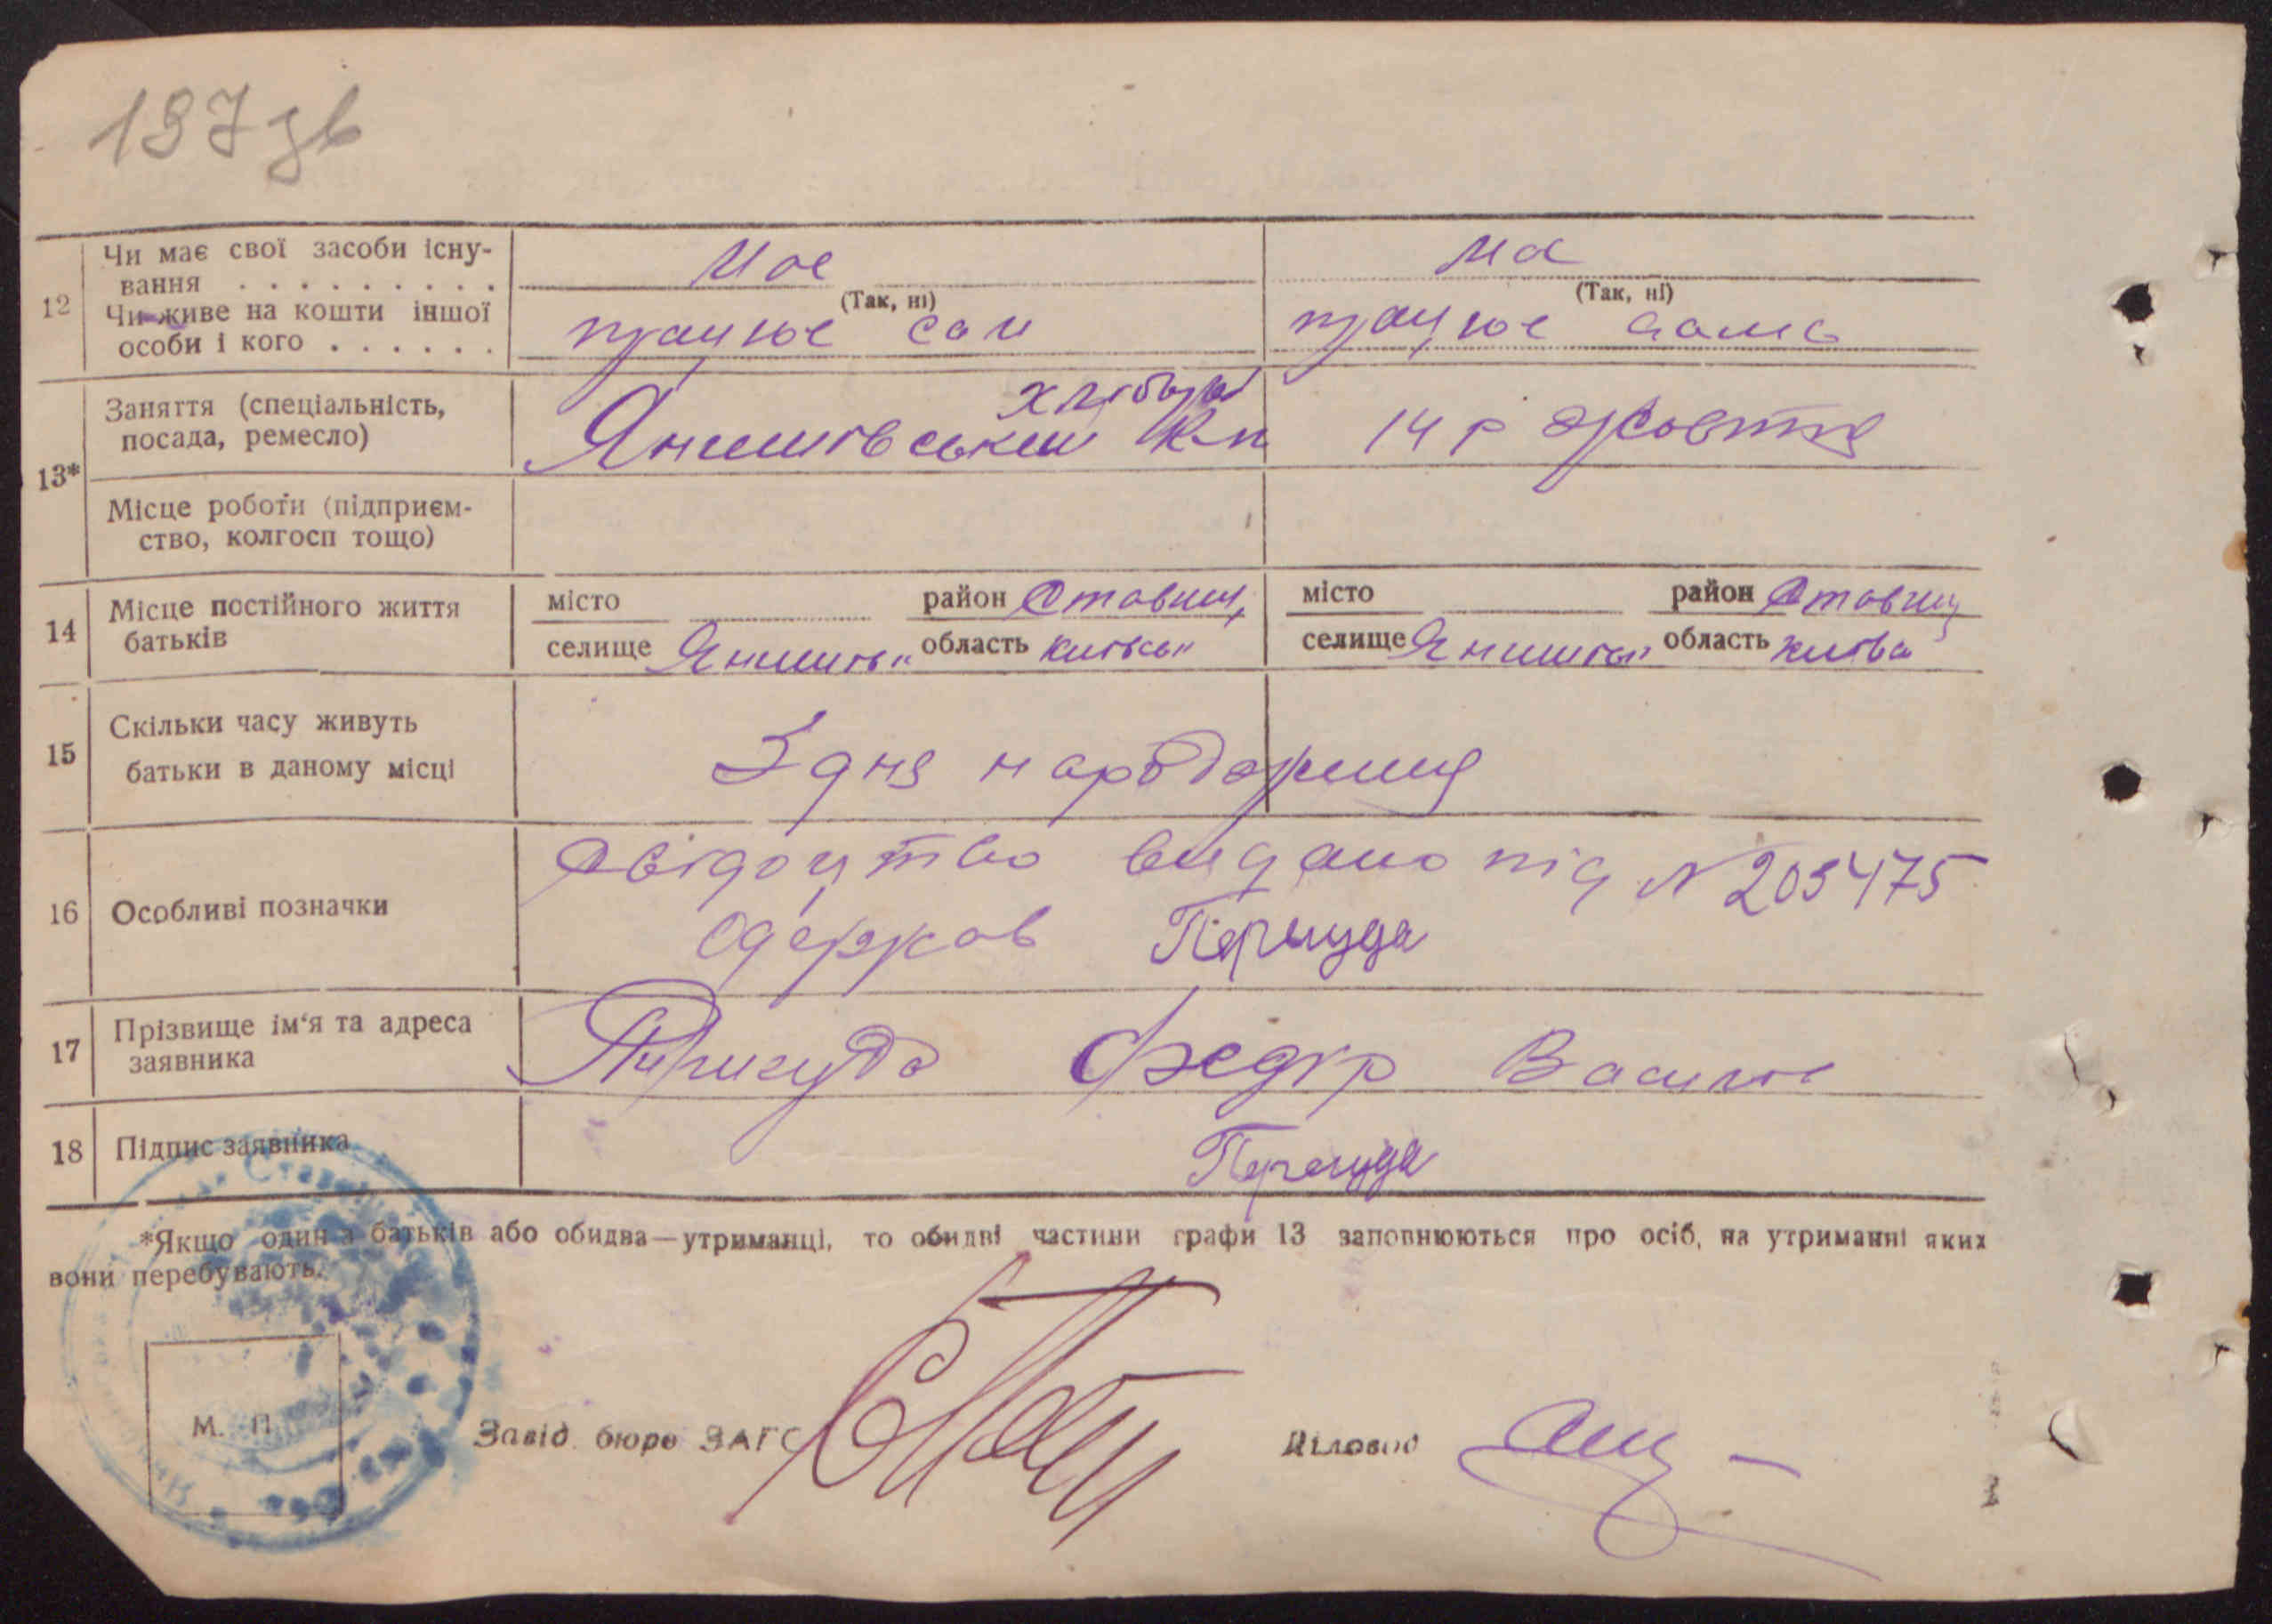 197 зв
12 Чи має свої засоби існу- Має Ма
вання . . . . . . . . . (Так, ні) (Так, ні)
Чи живе на кошти іншої працює сам працює сама
особи і кого . . . . . .
13* Заняття (спеціальність, хлібороб
посада, ремесло) Янишівський к-п 14 р жовтня
Місце роботи (підприєм-
ство, колгосп тощо)
14 Місце постійного життя місто район Ставищ, місто район Ставищ
батьків селище Янишівк область київськ селище Янишівк область київа
15 Скільки часу живуть
батьки в даному місці З дня народження
16 Особливі позначки Свідоцтво видано під N 203475
одержав Перегуда
17 Прізвище ім‘я та адреса
заявника Перегуда Федір Василов
18 Підпис заявника Перегуда
*Якщо один з батьків або обидва—утриманці, то обидві частини графи 13 заповнюються про осіб, на утриманні яких
вони перебувають.
М. П.
Завід. бюро ЗАГС Діловод